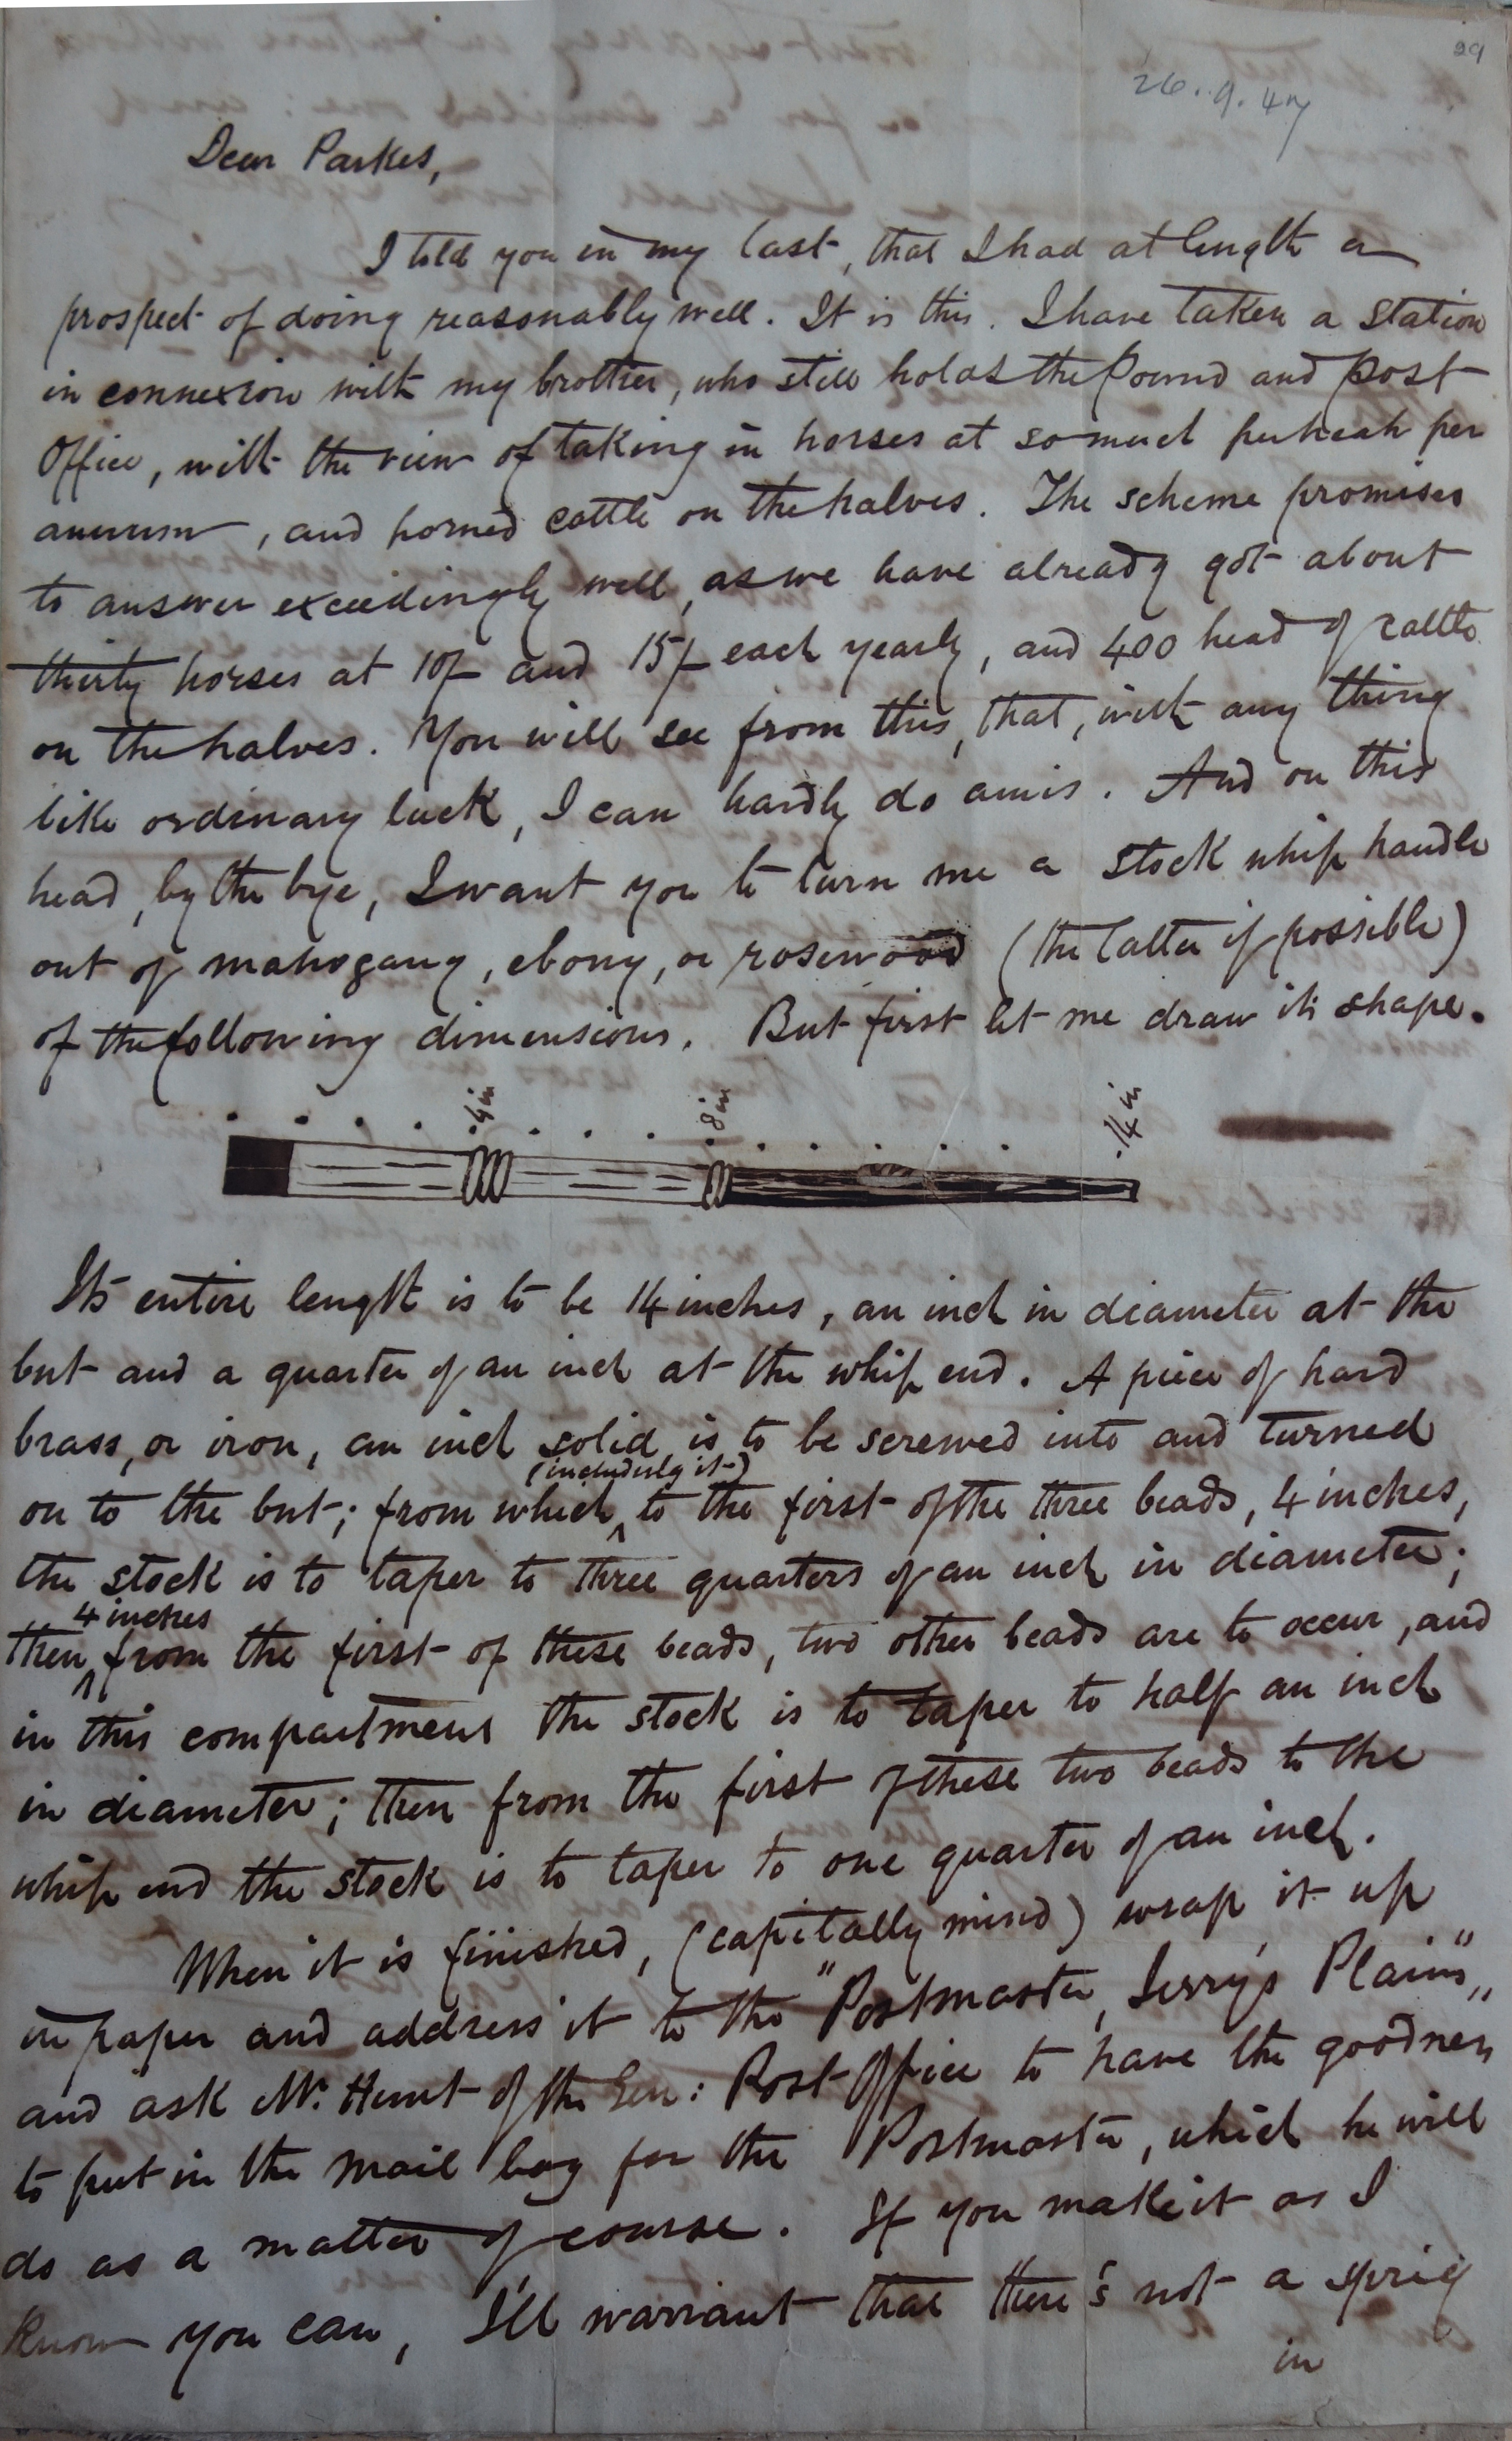 29
26.9.47
Dear Parkes,
I told you in my last, that I had at length a
prospect of doing reasonably well. It is this. I have taken a station
in connexion with my brother, who still holds the Pound and Post
Office, with the view of taking in horses at so much per head per
annum, and horned cattle on the halves. The scheme promises
to answer exceedingly well, as we have already got about
thirty horses at 10/- and 15/- each yearly, and 400 head of cattle
on the halves. You will see from this, that, with any thing
like ordinary luck, I can hardly do amis. And on this
head, by the bye, I want you to turn me a stock whip handle
out of mahogany, ebony, or rosewood (the latter if possible)
of the following dimensions. But first let me draw its shape.
4 in 8 in 14 in
Its entire length is to be 14 inches, an inch in diameter at the
but and a quarter of an inch at the whip end. A piece of hard
brass, or iron, an inch solid, is to be screwed into and turned
(includulg it)
on to the but; from which ^ to the first of the three beads, 4 inches,
the stock is to taper to three quarters of an inch in diameter;
4 inches
then ^ from the first of these beads, two other beads are to occur, and
in this compartment the stock is to taper to half an inch
in diameter; then from the first of these two beads to the
whip end the stock is to taper to one quarter of an inch.
When it is finished, (capitally mind) wrap it up
in paper and address it to the "Postmaster, Jerry's Plains",
and ask Mr. Hunt of the Gen: Post Office to have the goodness
to put in the mail bag for the Postmaster, which he will
do as a matter of course. If you make it as I
know you can, I'll warrant that there's not a sprig
in